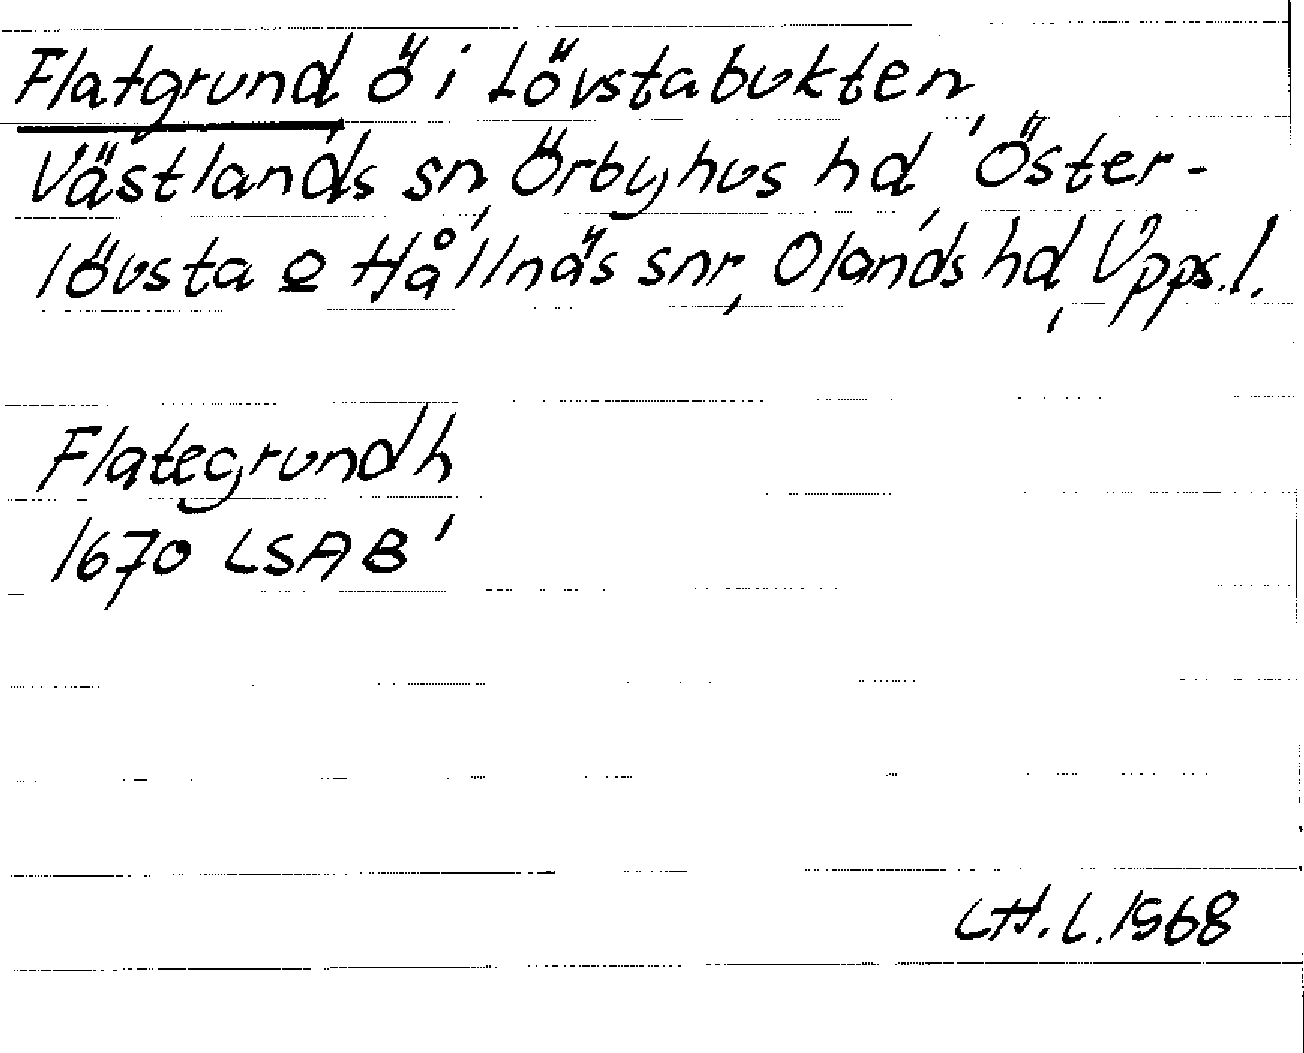 Flatgrund ö i Lövstabukten,
Västlands sn, Örbyhus hd, Öster-
lövsta o Hållnäs snr, Olands hd, Upps. l.
Flategrundh
1670 LSAB'
LH. L. 1968